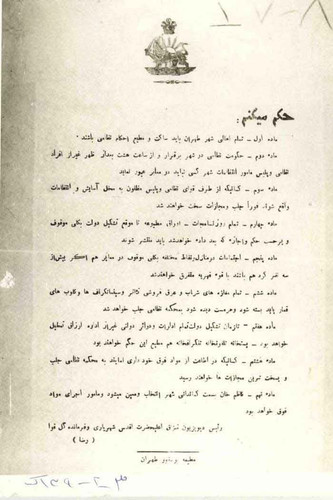 حکم میکنم:
ماده اول - تمام اهالی شهر طهران باید ساکت و مطیع احکام نظامی باشند
ماده دوم - حکومت نظامی در شهر برقرار و از ساعت هشت بعد از ظهر غیر از افراد
نظامی و پلیس مامور انتظامات شهر کسی نباید در معابر عبور نماید
ماده سوم - کسانیکه از طرف قوای نظامی و پلیس مظنون به مخل آسایش و انتظامات
واقع شوند فوراً جلب و مجازات سخت خواهند شد
ماده چهارم - تمام روزنامجات - اوراق مطبوعه تا موقع تشکیل دولت بکلی موقوف
و برحسب حکم و اجازه که بعد داده خواهد شد باید منتشر شوند
ماده پنجم - اجتماعات در منازل و نقاط مختلفه بکلی موقوف در معابر هم اگر بیش از
سه نفر گرد هم باشند با قوه قهریه متفرق خواهند شد
ماده ششم - تمام مغازه های شراب و عرق فروشی تئاتر و سینما فتگرافها و کلوب های
قمار باید بسته شود و هر مست دیده شود بمحکمه نظامی جلب خواهد شد
ماده هفتم - تا زمان تشکیل دولت تمام ادارات و دوائر دولتی غیر از اداره ارزاق تعطیل
خواهد بود - پستخانه تلفونخانه تلگرافخانه هم مطیع این حکم خواهند بود
ماده هشتم - کسانیکه در اطاعت از مواد فوق خود داری نمایند به محکمه نظامی جلب
و بسخت ترین مجازات ها خواهند رسید
ماده نهم - کاظم خان بسمت کماندانی شهر انتخاب و معین میشود و مامور اجرای مواد
فوق خواهد بود
رئیس دیویزیون قزاق اعلیحضرت اقدس شهریاری و فرمانده کل قوا
( رضا )
مطبعه طهران